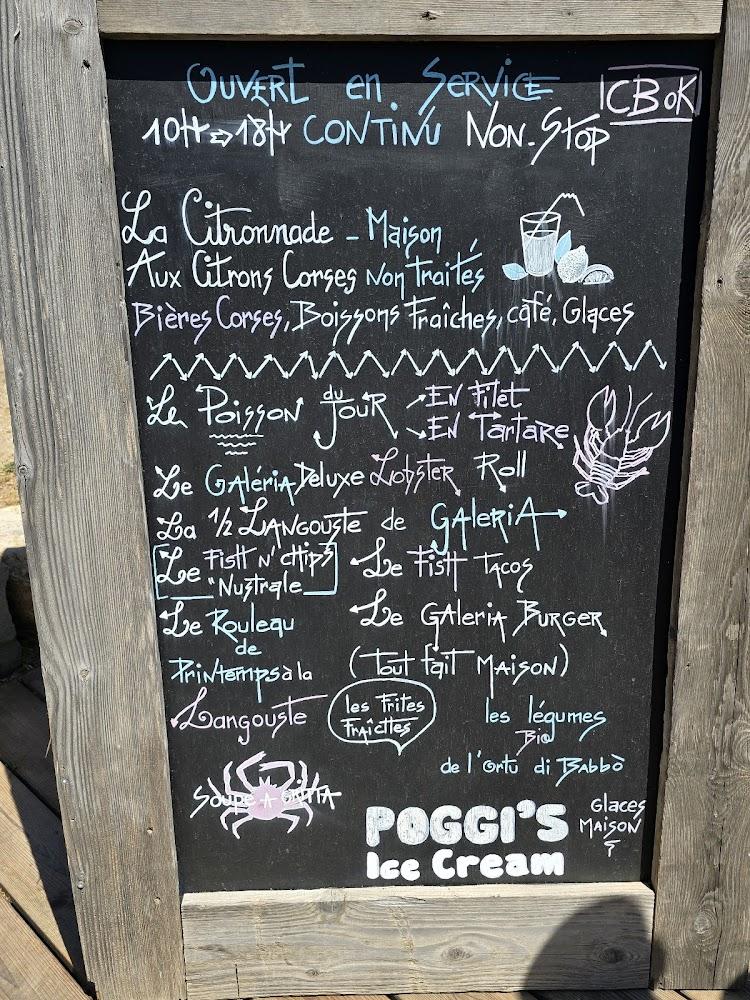 OUVERT en SERVICE
CB oK
10H⇨18H CONTINU NON-STOP
La Citronnade - Maison
Aux Citrons Corses Non Traités
Bières Corses, Boissons Fraîches, café, Glaces
Le Poisson du JOUR → EN Filet
→ EN Tartare
Le GALÉRIA Deluxe LOBSTER Roll
La 1/2 LANGOUSTE de GALERIA →
Le FISH N' CHIPS
"Nustrale
Le FISH TACOS
Le Rouleau
de
Printemps à la
Langouste
Le GALERIA BURGER
(Tout fait MAISON)
les Frites
FRAÎCHES
les légumes
Bio
de l'Ortu di BABBÒ
SOUPE A GRITTA
POGGI'S
Ice Cream
Glaces
MAISON